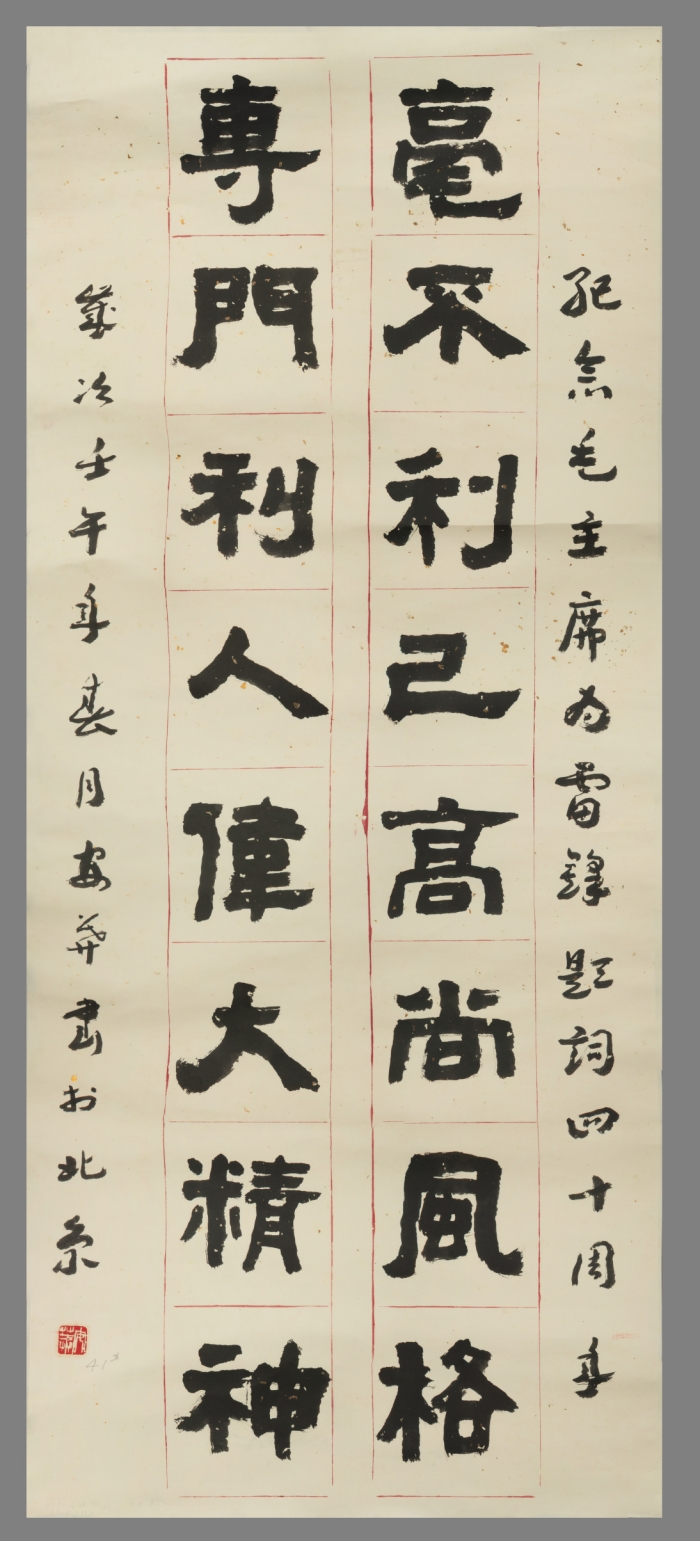 紀念毛主席为雷鋒題詞四十周年
毫不利己高尚風格
專門利人偉大精神
歲次壬午年春月安莽書於北京